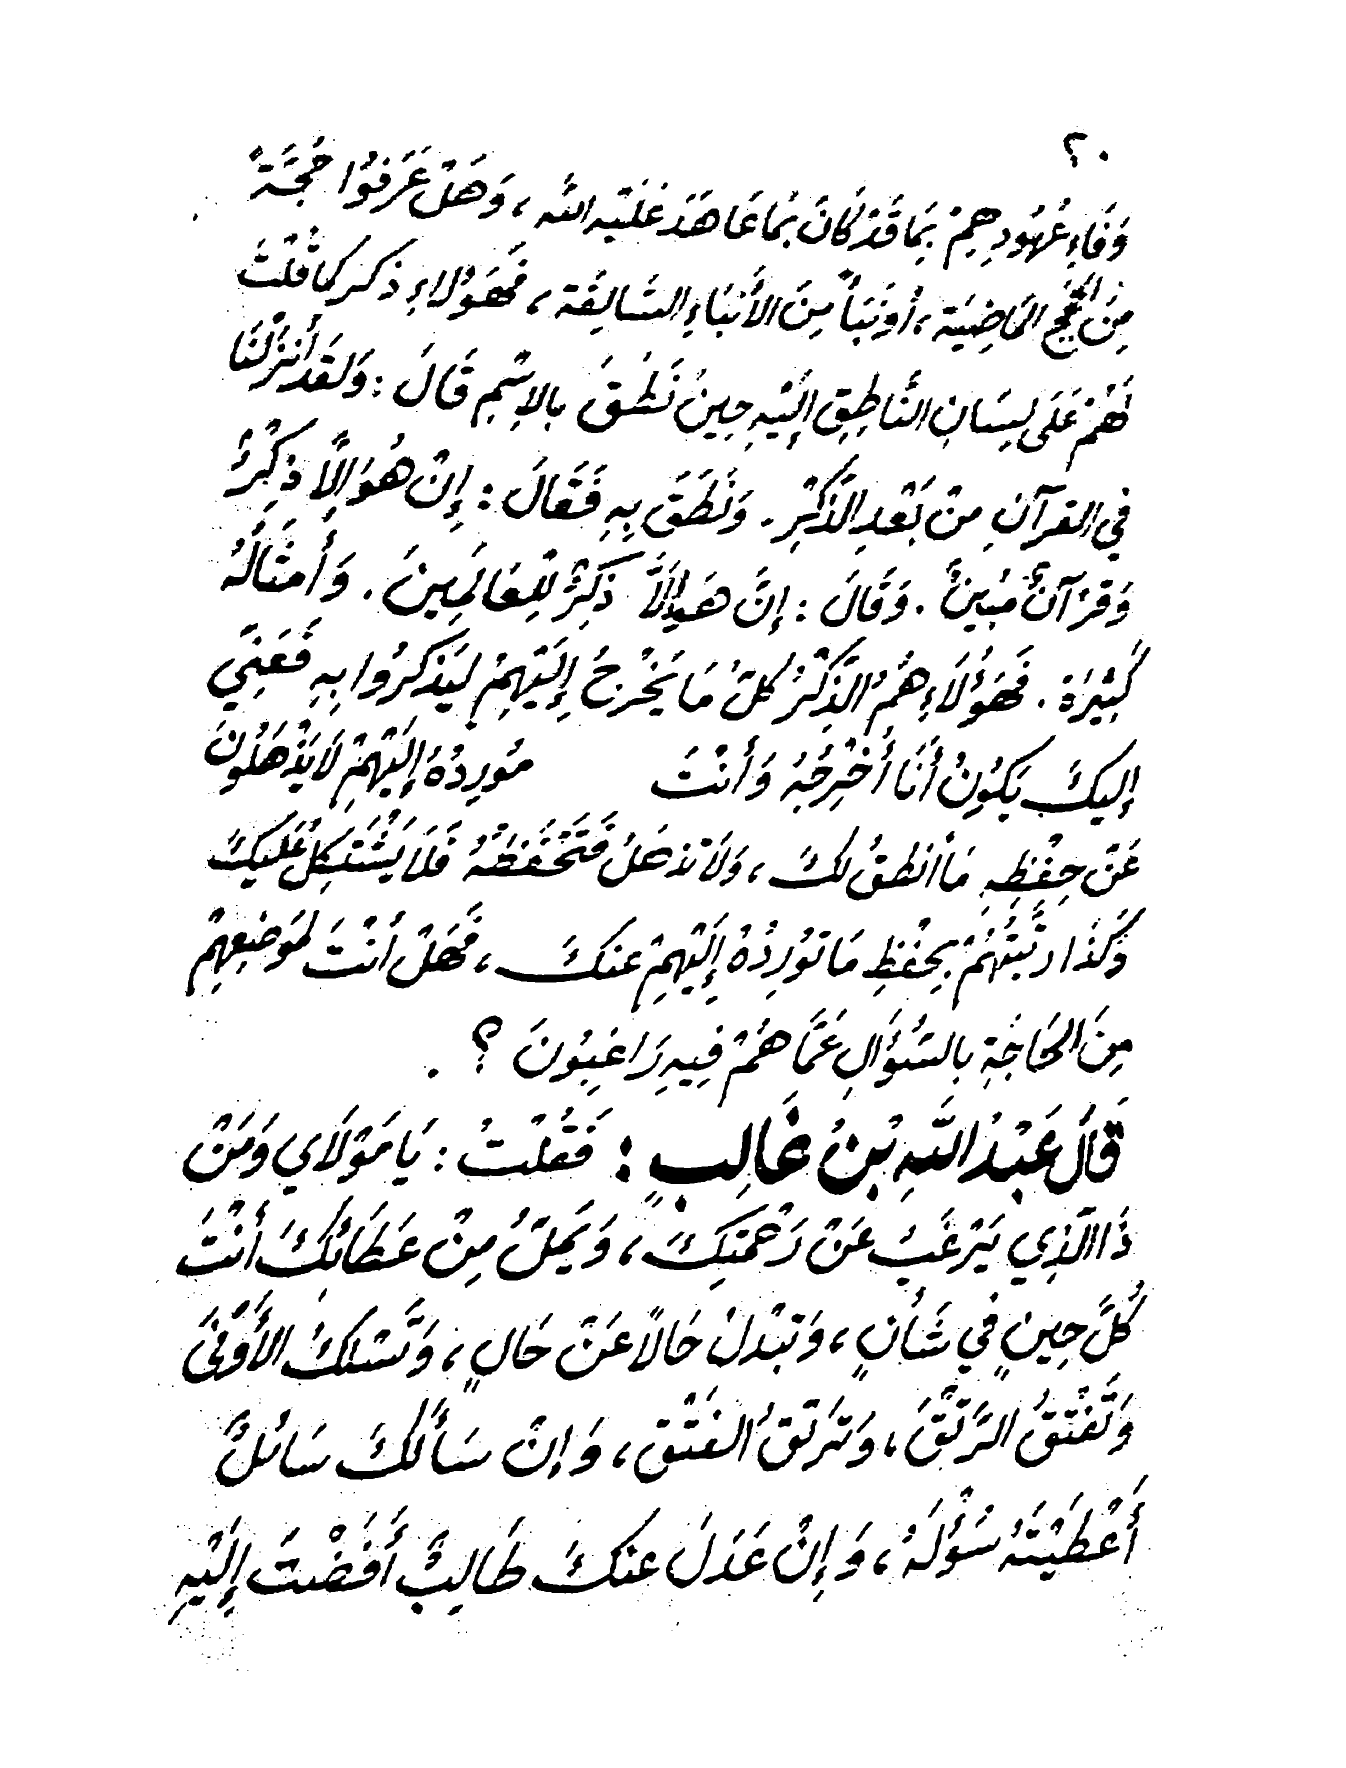 ٢٠
وَفَاءِ عُهُودِهِمْ بِمَا قَدْ كَانَ بِمَا عَاهَدَ عَلَيْهِ اللَّه ، وَهَلْ عَرَفُوا حُجَّةً
مِنَ الْحُجَجِ الْمَاضِيَةِ ، أَوْ نَبَأً مِنَ الأَنْبَاءِ السَّالِفَةِ ، فَهَؤُلاءِ ذكر كما قُلْتُ
لَهُمْ عَلَى لِسَانِ النَّاطِقِ إِلَيْهِ حِينَ نَطَقَ بِالإِسْمِ قَالَ : وَلَقَدْ أَنْزَلْنَا
فِي القرآنِ مِنْ بَعْدِ الذِّكْرِ . وَنَطَقَ بِهِ فَقَالَ : إِنْ هُوَ إِلَّا ذِكْرٌ
وَقُرْآنٌ مُبِينٌ . وَقَالَ : إِنَّ هَيَ إِلَّا ذِكْرٌ لِلْعَالَمِينَ . وَأَمْثَالُهُ
كَثِيْرَة . فَهَؤُلَاءِ هُمُ الذِّكْرُ كُلّ مَا يَخْرُجُ إِلَيْهِمْ لِيَذكرُوا بِهِ فَعَنِّي
إليكَ يَكُونُ أَنَا أُخْرِجُهُ وَأَنْتَ مُورِدُهُ إِلَيْهِمْ لَا يَذْهَلُونَ
عَنْ حِفْظِهِ مَا أنطقُ لكَ ، وَلَا تذهلُ فَتَحْفَظَهُ فَلَا يَشْتَكِلُ عَلَيكَ
وَكَذَا رتَّبْتُهُمْ بِحِفْظِ مَا تُورِدُهُ إِلَيْهِمْ عنكَ ، فَهَلْ أنْتَ لمَوضِعِهِمْ
مِنَ الحَاجَةِ بالسُّؤَالِ عَمَّا هُمْ فِيهِ رَاغِبُونَ ؟ .
قَالَ عَبْدُ اللَّهِ بْنُ غَالِبٍ : فَقُلْتُ : يَا مَوْلَاي وَمَنْ
ذَا الَّذِي يَرْغَبُ عَنْ رَحْمَتِكَ ، وَيَمَلُّ مِنْ عَطَائكَ أَنْتَ
كُلَّ حِينٍ فِي شَأْنٍ ، وَتبْدلُ حَالاً عَنْ حَالٍ ، وَتَسْلكُ الأَوْفَى
وَتَفْتقُ الرَّتْقَ ، وَتَرتقُ الفَتْق ، وَإِنْ سَأَلَكَ سَائلٌ
أَعْطَيْتَهُ سُؤْلَهُ ، وَإِنْ عَدَلَ عنكَ طَالِبٌ أَفَضْتَ إِلَيْهِ